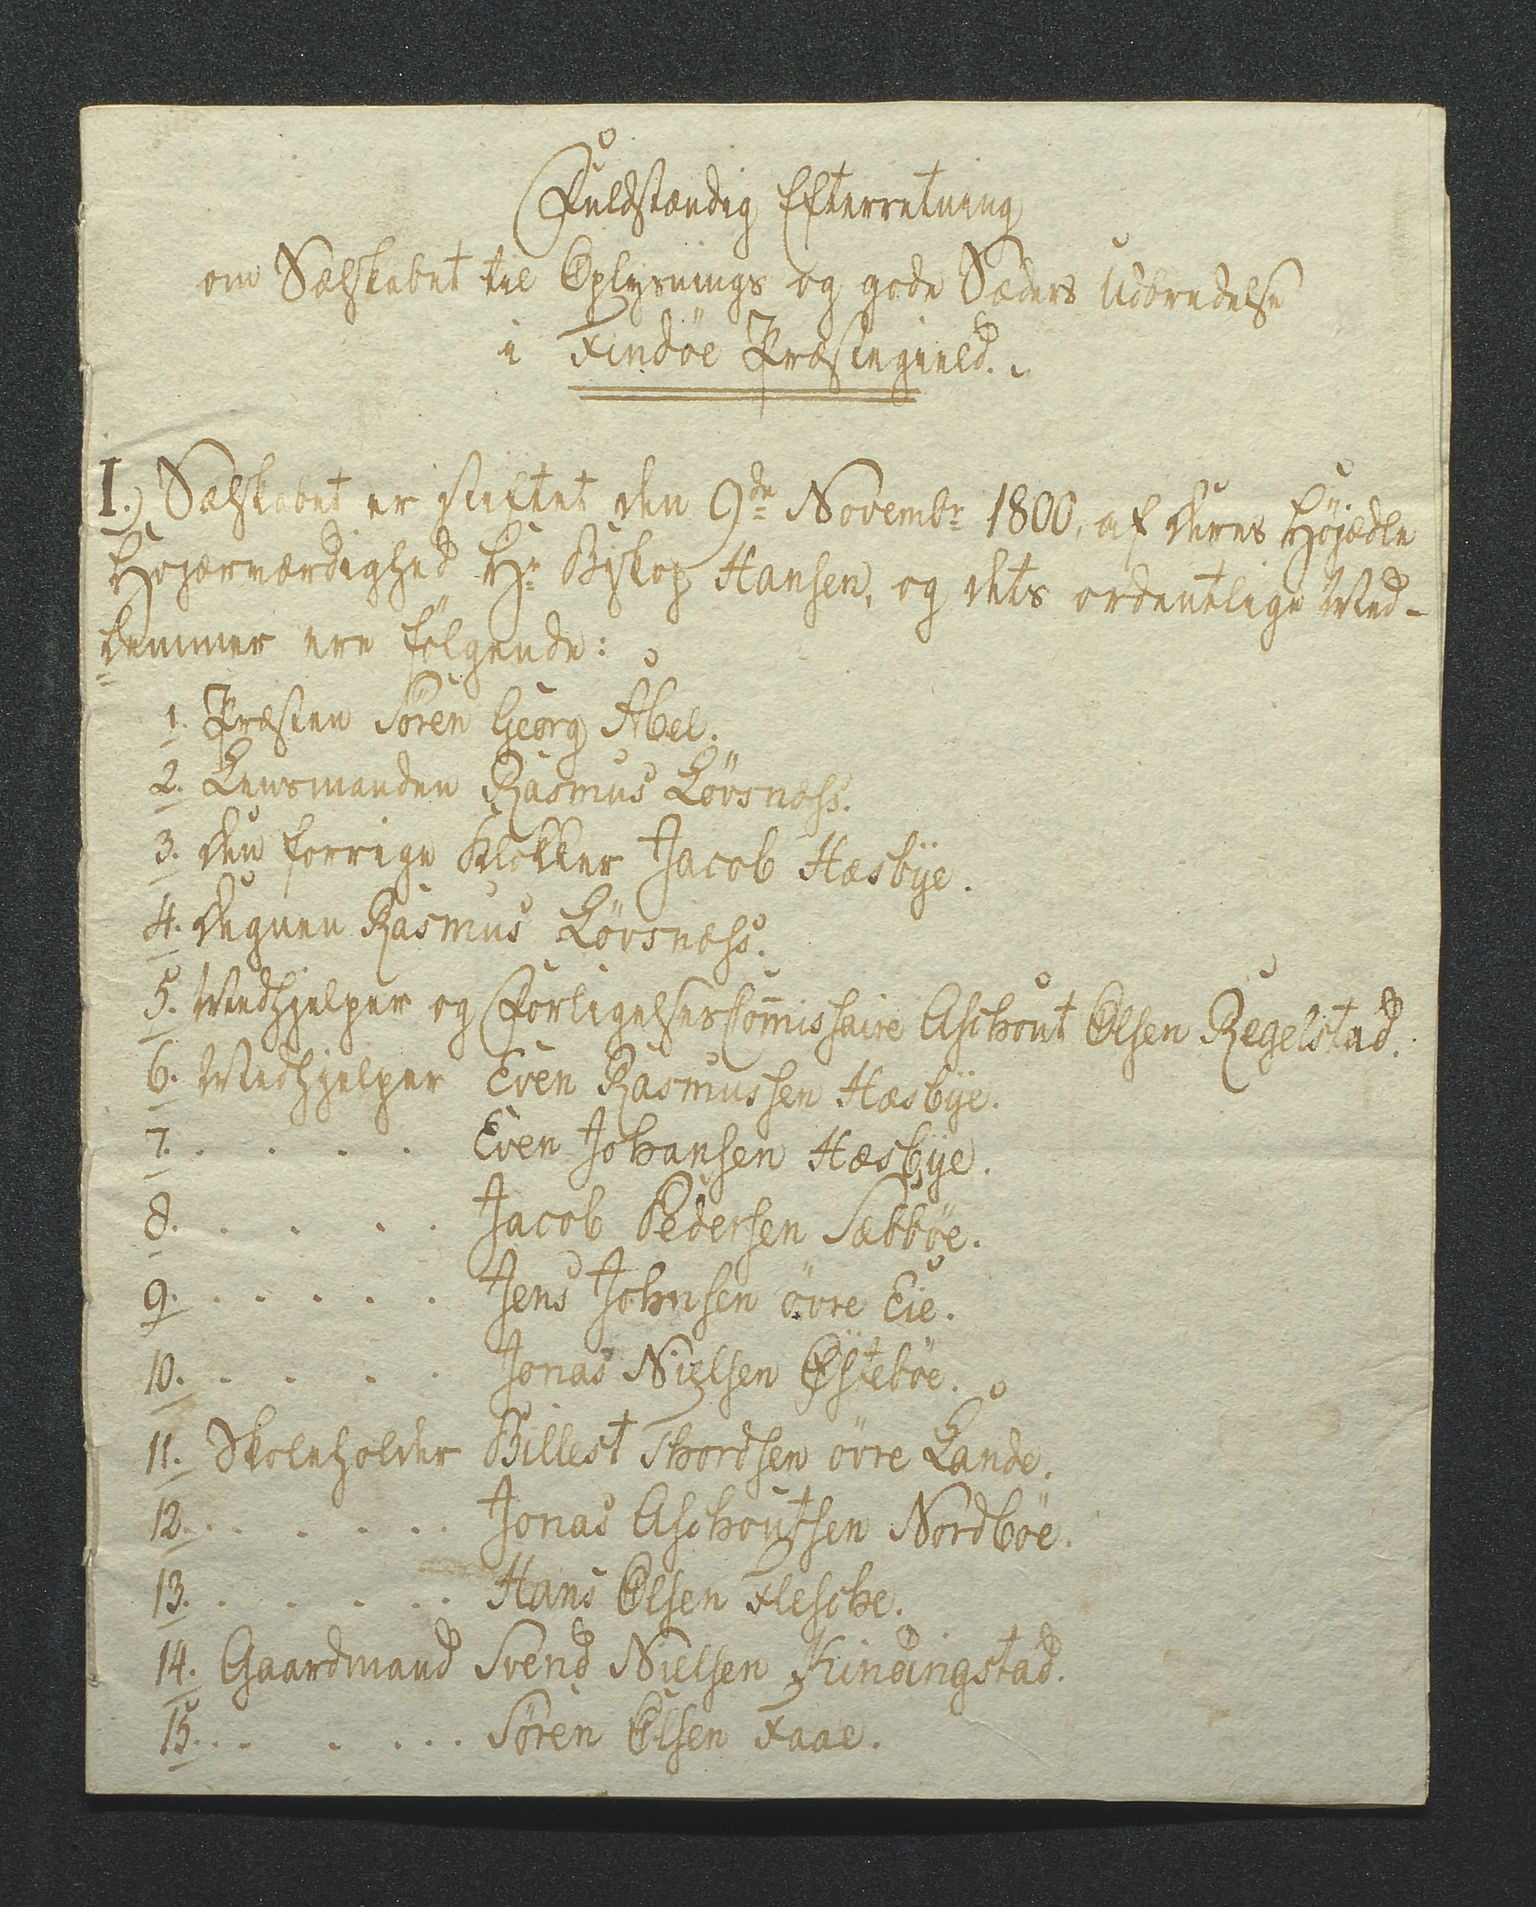 Fuldstændig Efterretning
om Sælskabet til Oplysnings og gode Sæders Udbredelse
i Findöe Præstegield.
I.) Sælskabet er stiftet den 9de Novembr 1800, af Deres Höjædle
Höjærværdighed Hr Biskop Hansen, og dets ordentlige Med-
lemmer ere fölgende:
1. Præsten Sören Georg Abel.
2. Lensmanden Rasmus Lövsnæss.
3. Den forrige Klokker Jacob Hæsbÿe.
4. Degnen Rasmus Lövsnæss.
5. Medhjelper og ForligelsesCom̄issaire Aschout Olsen Regelstad.
6. Medhjelper Even Rasmussen Hæsbÿe.
7. . . . . Even Johansen Hæsbÿe.
8. . . . . Jacob Pedersen Sæbböe.
9. . . . . . Jens Johnsen övre Eie.
10. . . . . Jonas Nielsen Østeböe.
11. Skoleholder Billest Thordsen övre Lande.
12. . . . . . Jonas Aschoutsen Nordböe.
13. . . . . . Hans Olsen Flesche.
14. Gaardmand Svend Nielsen Kindingstad.
15. . . . . . . Sören Olsen Faae.